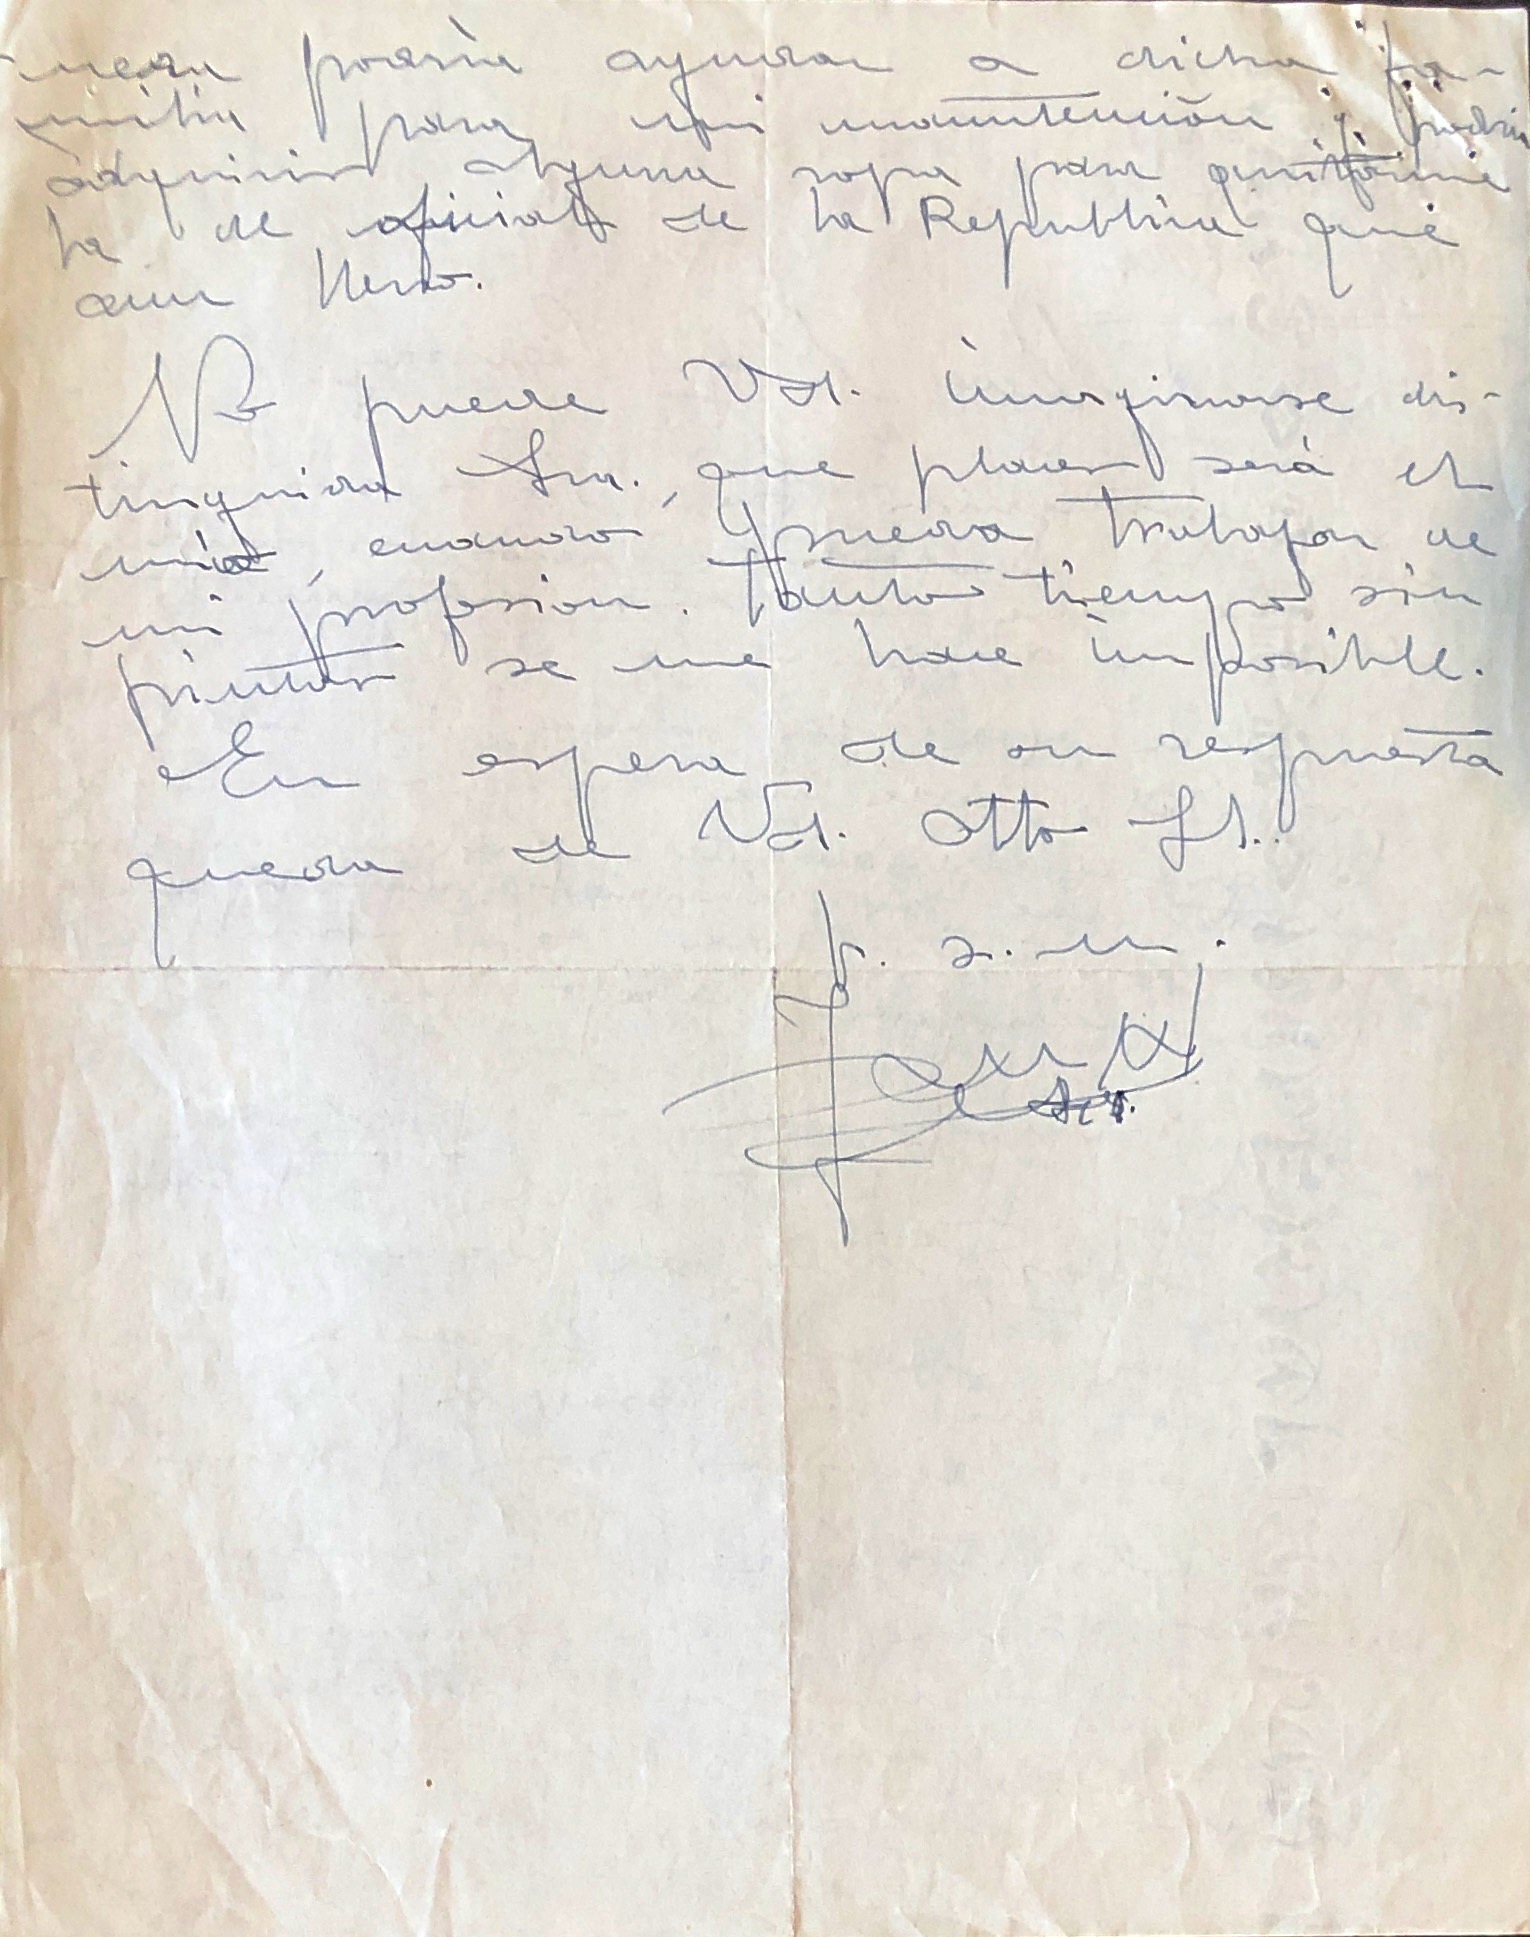 nera podría ayudar a dicha fa-
milia para mi manutención y podría
adquirir alguna ropa para quitarme
la de oficial de la República que
aun llevo.
No puede Vd. imaginarse dis-
tinguida Sra., que placer será el
mío, cuando pueda trabajar de
mi profesion. Tanto tiempo sin
pintar se me hace imposible.
En espera de su respuesta
queda de Vd. Atto